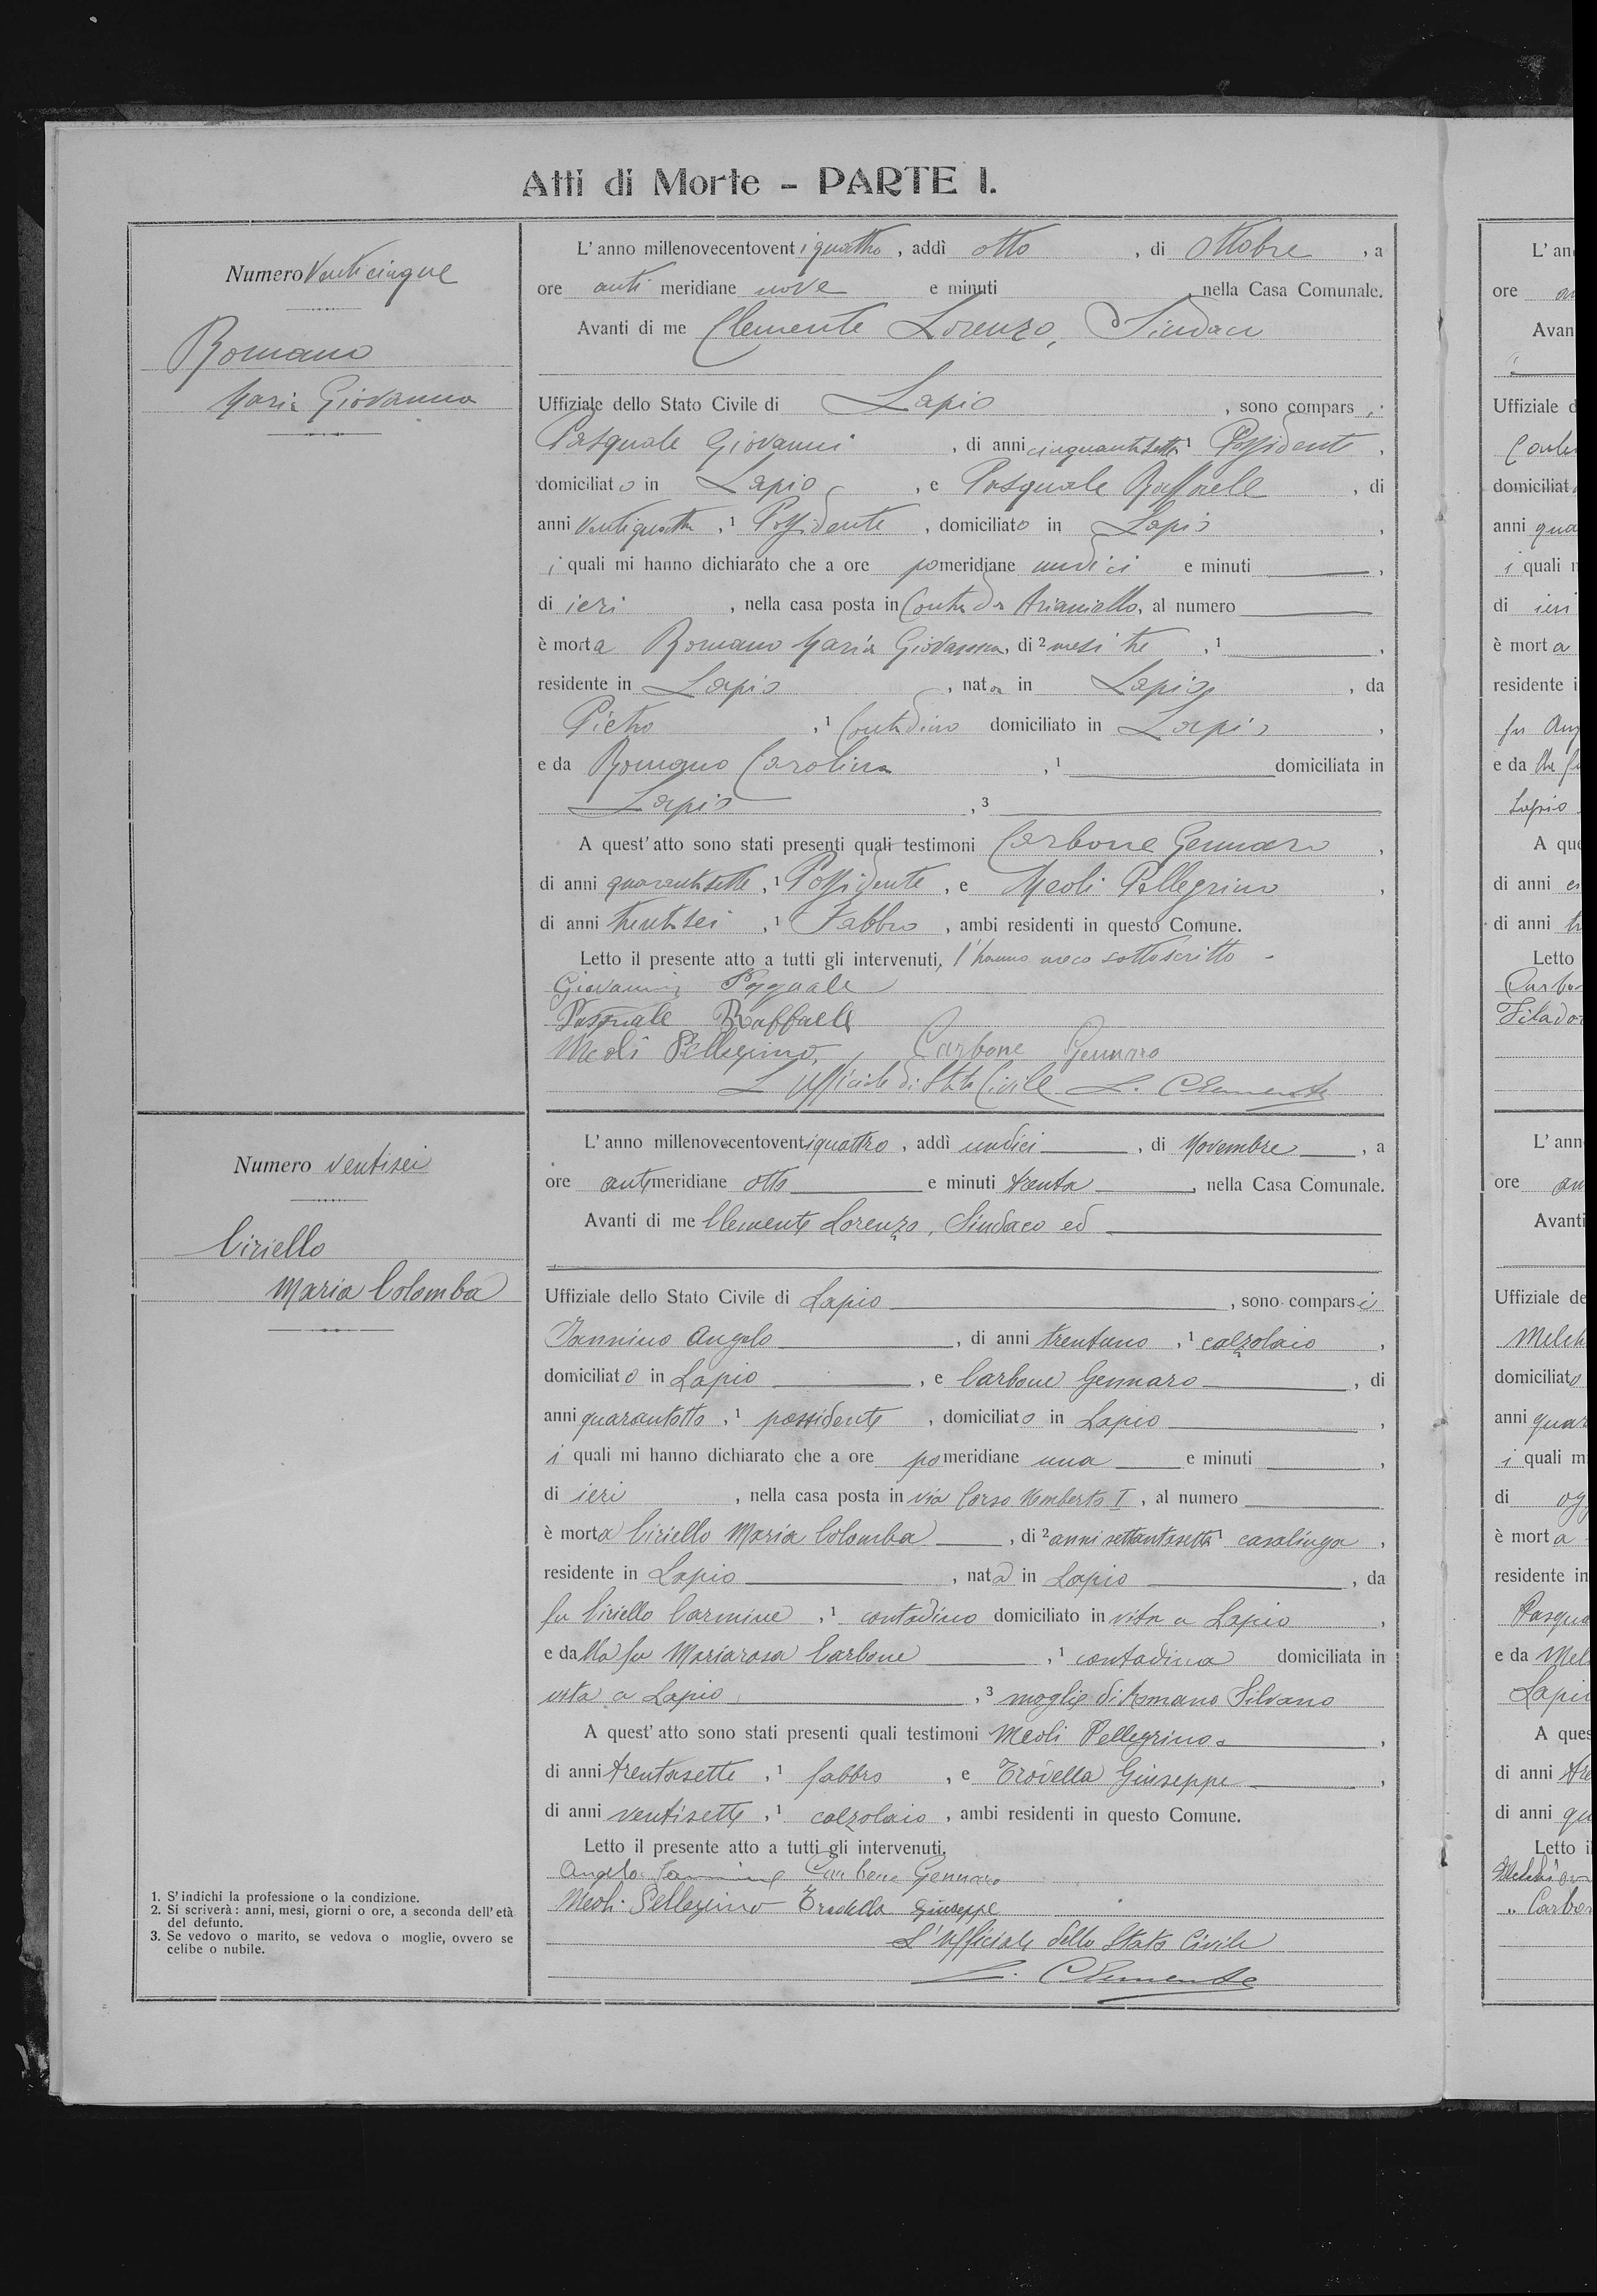 Atti di Morte - PARTE I.
Numero Venticinque
Romano
Maria Giovanna
L' anno millenovecentoventiquattro, addì otto, di Ottobre, a
ore antimeridiane nove e minuti, nella Casa Comunale.
Avanti di me Clemente Lorenzo, Sindaco
Uffiziale dello Stato Civile di Lapio, sono comparsi
Pasquale Giovanni, di anni cinquantasette ¹ Possidente,
domiciliato in Lapio, e Pasquale Raffaele, di
anni ventiquattro, ¹ Possidente, domiciliato in Lapio,
i quali mi hanno dichiarato che a ore pomeridiane undici e minuti ,
di ieri, nella casa posta in Contrada Arianiello, al numero
è morta Romano Maria Giovanna, di ² mesi tre, ¹ ,
residente in Lapio, nata in Lapio, da
Pietro, ¹ Contadino domiciliato in Lapio,
e da Romano Carolina, ¹ domiciliata in
Lapio, ³
A quest' atto sono stati presenti quali testimoni Carbone Gennaro,
di anni quarantasette, ¹ Possidente, e Meoli Pellegrino,
di anni trentasei, ¹ Fabbro, ambi residenti in questo Comune.
Letto il presente atto a tutti gli intervenuti, l'hanno meco sottoscritto -
Giovanni Pasquale
Pasquale Raffaele
Meoli Pellegrino, Carbone Gennaro
L'Ufficiale di Stato Civile L. Clemente
Numero ventisei
Ciriello
Maria Colomba
L' anno millenovecentoventiquattro, addì undici, di Novembre, a
ore antimeridiane otto e minuti trenta, nella Casa Comunale.
Avanti di me Clemente Lorenzo, Sindaco ed
Uffiziale dello Stato Civile di Lapio, sono comparsi
Iannino Angelo, di anni trentuno, ¹ calzolaio,
domiciliato in Lapio, e Carbone Gennaro, di
anni quarantotto, ¹ possidente, domiciliato in Lapio,
i quali mi hanno dichiarato che a ore pomeridiane una e minuti ,
di ieri, nella casa posta in via Corso Umberto I, al numero
è morta Ciriello Maria Colomba, di ² anni settantasette ¹ casalinga,
residente in Lapio, nata in Lapio, da
fu Ciriello Carmine, ¹ contadino domiciliato in vita a Lapio,
e dalla fu Mariarosa Carbone, ¹ contadina domiciliata in
vita a Lapio, ³ moglie di Romano Silvano
A quest' atto sono stati presenti quali testimoni Meoli Pellegrino,
di anni trentasette, ¹ fabbro, e Trodella Giuseppe,
di anni ventisette, ¹ calzolaio, ambi residenti in questo Comune.
Letto il presente atto a tutti gli intervenuti,
Angelo Iannino Carbone Gennaro
Meoli Pellegrino Trodella Giuseppe
L'Ufficiale dello Stato Civile
L. Clemente
1. S' indichi la professione o la condizione.
2. Si scriverà: anni, mesi, giorni o ore, a seconda dell' età
del defunto.
3. Se vedovo o marito, se vedova o moglie, ovvero se
celibe o nubile.